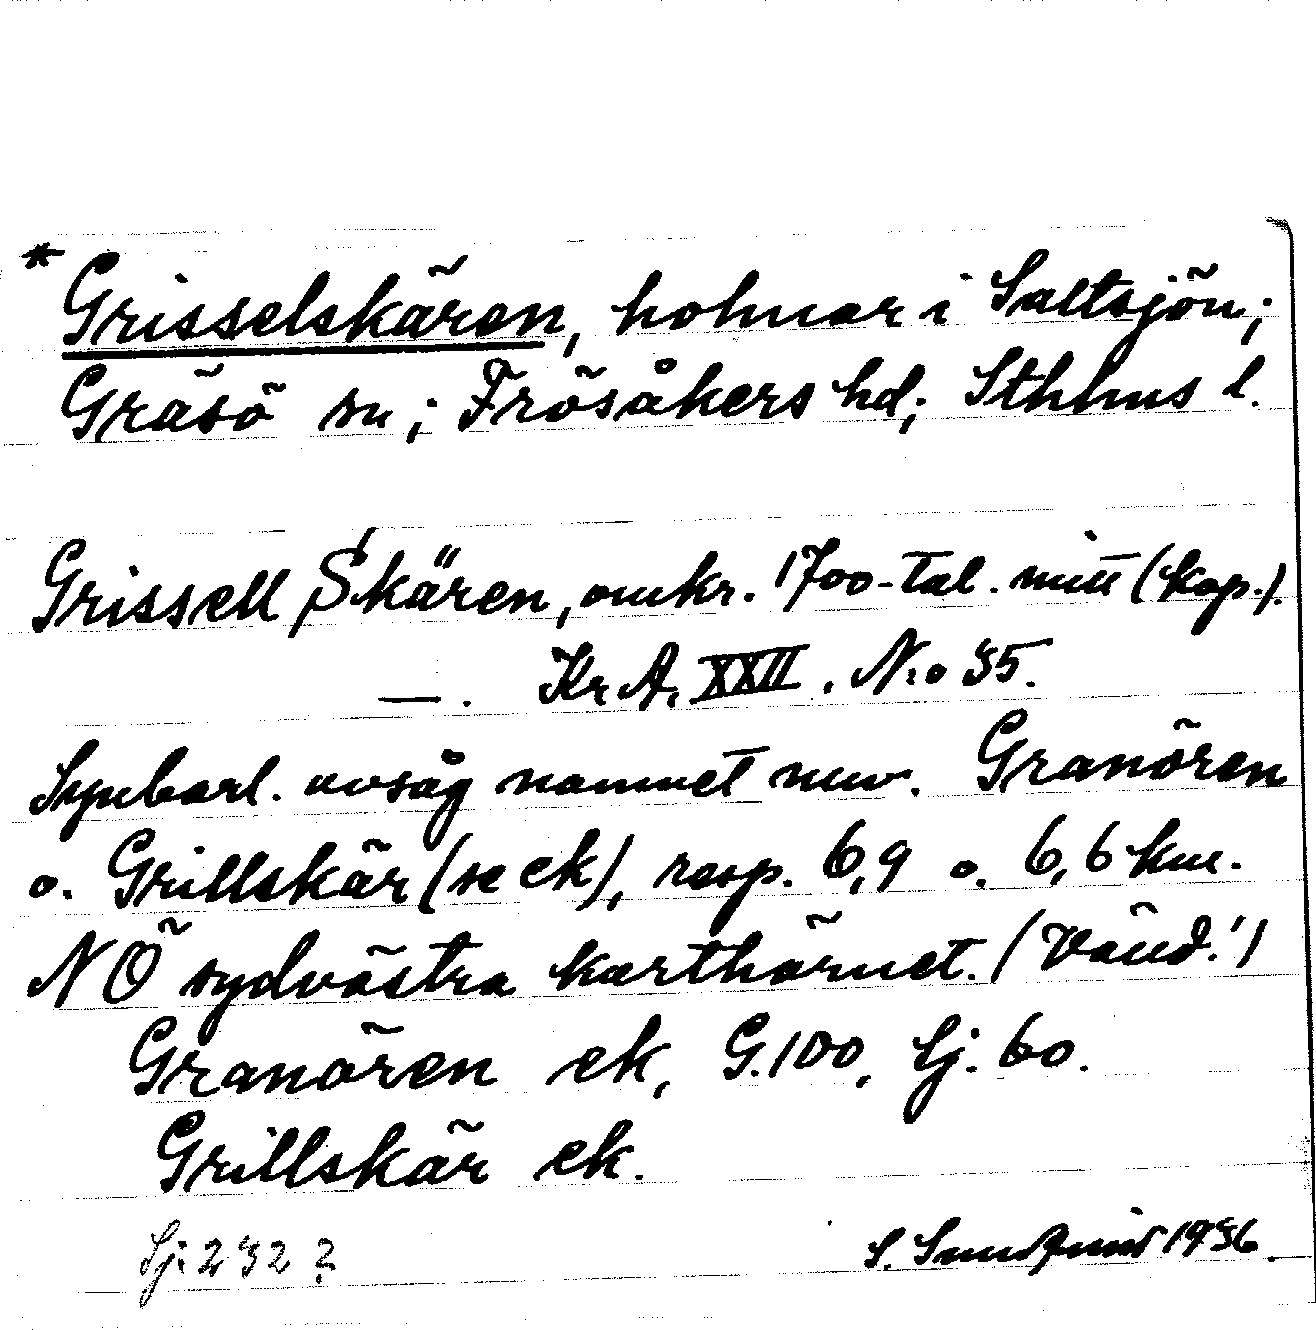 * Grisselskären, holmar i Saltsjön;
Gräsö sn; Frösåkers hd; Sthlms l.
Grissell Skären, omkr. 1700-tal. mitt (kop.).
—. KrA. XXII. N:o 35.
Synbarl. avsåg namnet nuv. Granören
o. Grillskär (se ek), resp. 6,9 o. 6,6 km.
NÖ sydvästra karthörnet. (Vänd!)
Granören ek, G.100, Sj. 60.
Grillskär ek.
Sj: 232 ?
S. 1936.